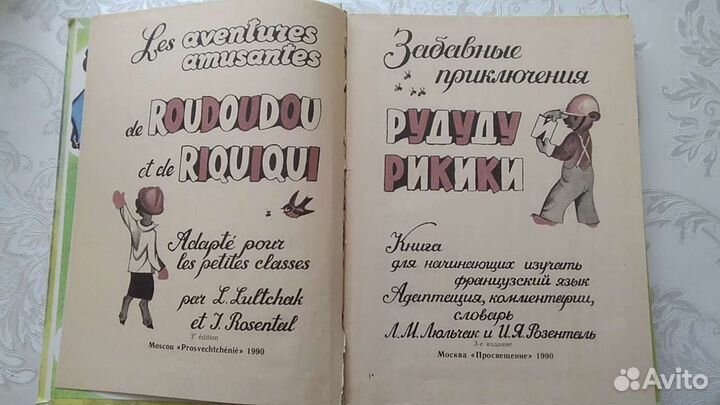 Les aventures
amusantes
de ROUDOUDOU
et de RIQUIQUI
Adapté pour
les petites classes
par L. Lultchak
et J. Rosental
3ᵉ édition
Moscou «Prosvechtchénié» 1990
Забавные
приключения
РУДУДУ И
РИКИКИ
Книга
для начинающих изучать
французский язык
Адаптация, комментарии,
словарь
Л.М.Люльчак и И.Я.Розенталь
3-е издание
Москва «Просвещение» 1990
1*
Avito